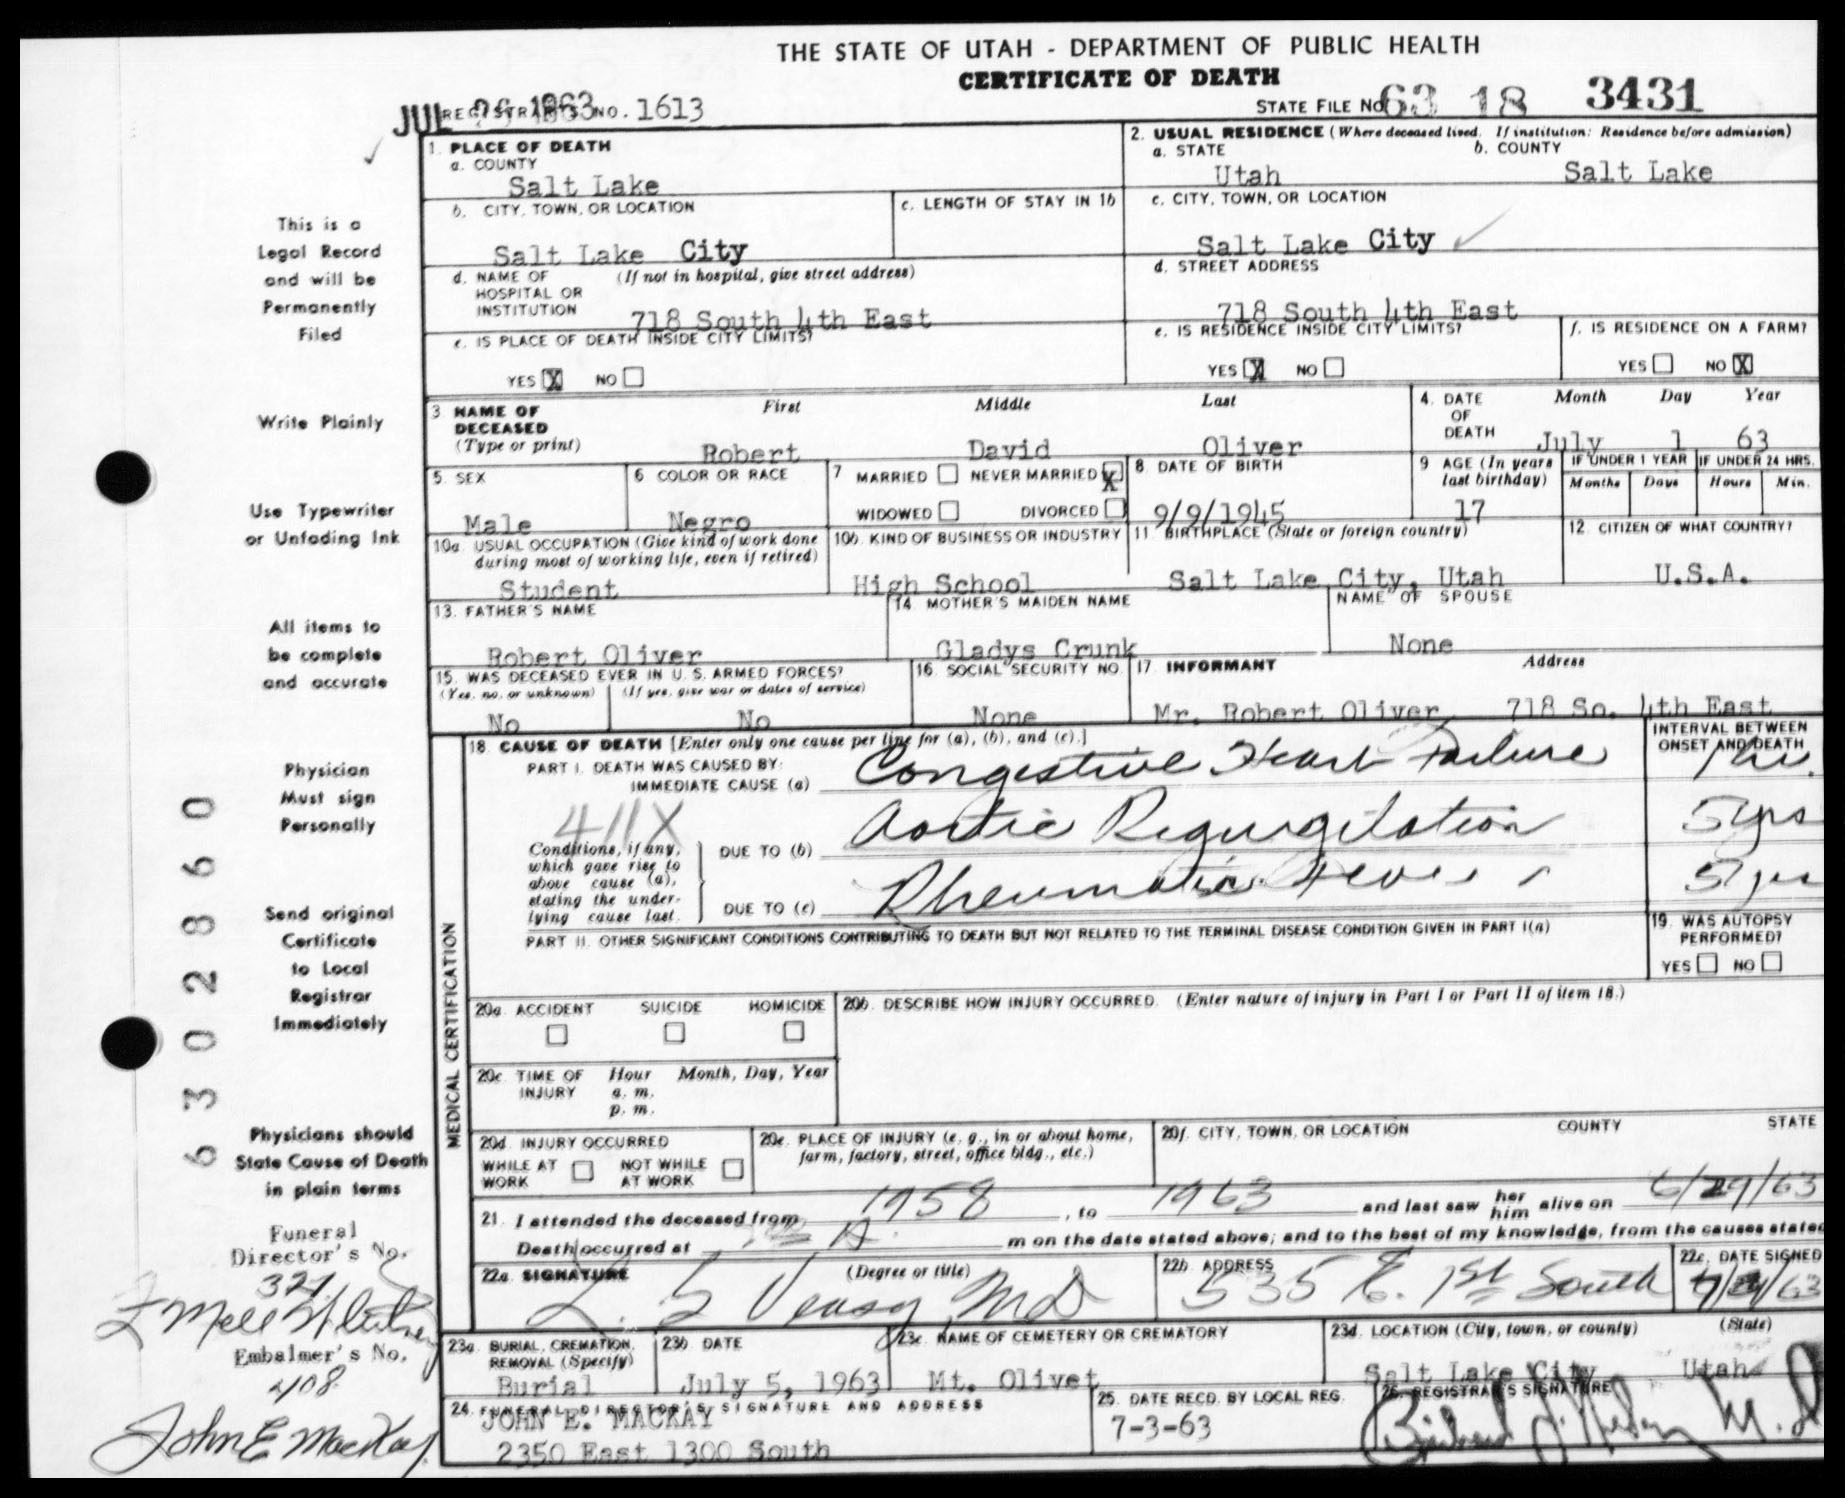 THE STATE OF UTAH - DEPARTMENT OF PUBLIC HEALTH
CERTIFICATE OF DEATH
JUL 26 1963
REGISTRAR'S NO. 1613
STATE FILE NO. 63 18 3431
1. PLACE OF DEATH
a. COUNTY
Salt Lake
2. USUAL RESIDENCE (Where deceased lived. If institution: Residence before admission)
a. STATE b. COUNTY
Utah Salt Lake
b. CITY, TOWN, OR LOCATION
Salt Lake City
c. LENGTH OF STAY IN 1b
c. CITY, TOWN, OR LOCATION
Salt Lake City
d. NAME OF HOSPITAL OR INSTITUTION (If not in hospital, give street address)
718 South 4th East
d. STREET ADDRESS
718 South 4th East
e. IS PLACE OF DEATH INSIDE CITY LIMITS?
YES X NO
e. IS RESIDENCE INSIDE CITY LIMITS?
YES X NO
f. IS RESIDENCE ON A FARM?
YES NO X
3 NAME OF DECEASED (Type or print)
First Middle Last
Robert David Oliver
4. DATE OF DEATH Month Day Year
July 1 63
5. SEX
Male
6 COLOR OR RACE
Negro
7 MARRIED NEVER MARRIED X
WIDOWED DIVORCED
8 DATE OF BIRTH
9/9/1945
9 AGE (In years last birthday)
17
IF UNDER 1 YEAR IF UNDER 24 HRS.
Months Days Hours Min.
10a USUAL OCCUPATION (Give kind of work done during most of working life, even if retired)
Student
10b. KIND OF BUSINESS OR INDUSTRY
High School
11. BIRTHPLACE (State or foreign country)
Salt Lake City, Utah
12 CITIZEN OF WHAT COUNTRY?
U.S.A.
13. FATHER'S NAME
Robert Oliver
14 MOTHER'S MAIDEN NAME
Gladys Crunk
NAME OF SPOUSE
None
15. WAS DECEASED EVER IN U. S. ARMED FORCES?
(Yes, no, or unknown) (If yes, give war or dates of service)
No No
16 SOCIAL SECURITY NO.
None
17. INFORMANT Address
Mr. Robert Oliver 718 So. 4th East
MEDICAL CERTIFICATION
18. CAUSE OF DEATH [Enter only one cause per line for (a), (b), and (c).]
INTERVAL BETWEEN ONSET AND DEATH
PART I. DEATH WAS CAUSED BY:
IMMEDIATE CAUSE (a) Congestive Heart Failure
411X
Conditions, if any, which gave rise to above cause (a), stating the underlying cause last.
DUE TO (b) Aortic Regurgitation 5 yrs
DUE TO (c) Rheumatic Fever 5 yrs
PART II. OTHER SIGNIFICANT CONDITIONS CONTRIBUTING TO DEATH BUT NOT RELATED TO THE TERMINAL DISEASE CONDITION GIVEN IN PART I(a)
19. WAS AUTOPSY PERFORMED?
YES NO
20a. ACCIDENT SUICIDE HOMICIDE
20b. DESCRIBE HOW INJURY OCCURRED. (Enter nature of injury in Part I or Part II of item 18.)
20c. TIME OF INJURY Hour Month, Day, Year
a. m.
p. m.
20d. INJURY OCCURRED
WHILE AT WORK NOT WHILE AT WORK
20e. PLACE OF INJURY (e. g., in or about home, farm, factory, street, office bldg., etc.)
20f. CITY, TOWN, OR LOCATION COUNTY STATE
21. I attended the deceased from 1958, to 1963 and last saw her him alive on 6/29/63
Death occurred at m on the date stated above; and to the best of my knowledge, from the causes stated
22a. SIGNATURE (Degree or title)
L. S. Veasy, MD
22b. ADDRESS
535 E. 1st South
22c. DATE SIGNED
23a. BURIAL, CREMATION, REMOVAL (Specify)
Burial
23b DATE
July 5, 1963
23c. NAME OF CEMETERY OR CREMATORY
Mt. Olivet
23d. LOCATION (City, town, or county) (State)
Salt Lake City Utah
24. FUNERAL DIRECTOR'S SIGNATURE AND ADDRESS
JOHN E. MACKAY
2350 East 1300 South
25. DATE RECD. BY LOCAL REG.
7-3-63
26. REGISTRAR'S SIGNATURE
M.D.
This is a
Legal Record
and will be
Permanently
Filed
Write Plainly
Use Typewriter
or Unfading Ink
All items to
be complete
and accurate
Physician
Must sign
Personally
Send original
Certificate
to Local
Registrar
Immediately
Physicians should
State Cause of Death
in plain terms
Funeral
Director's No.
327
Embalmer's No.
408
John E MacKay
6302860